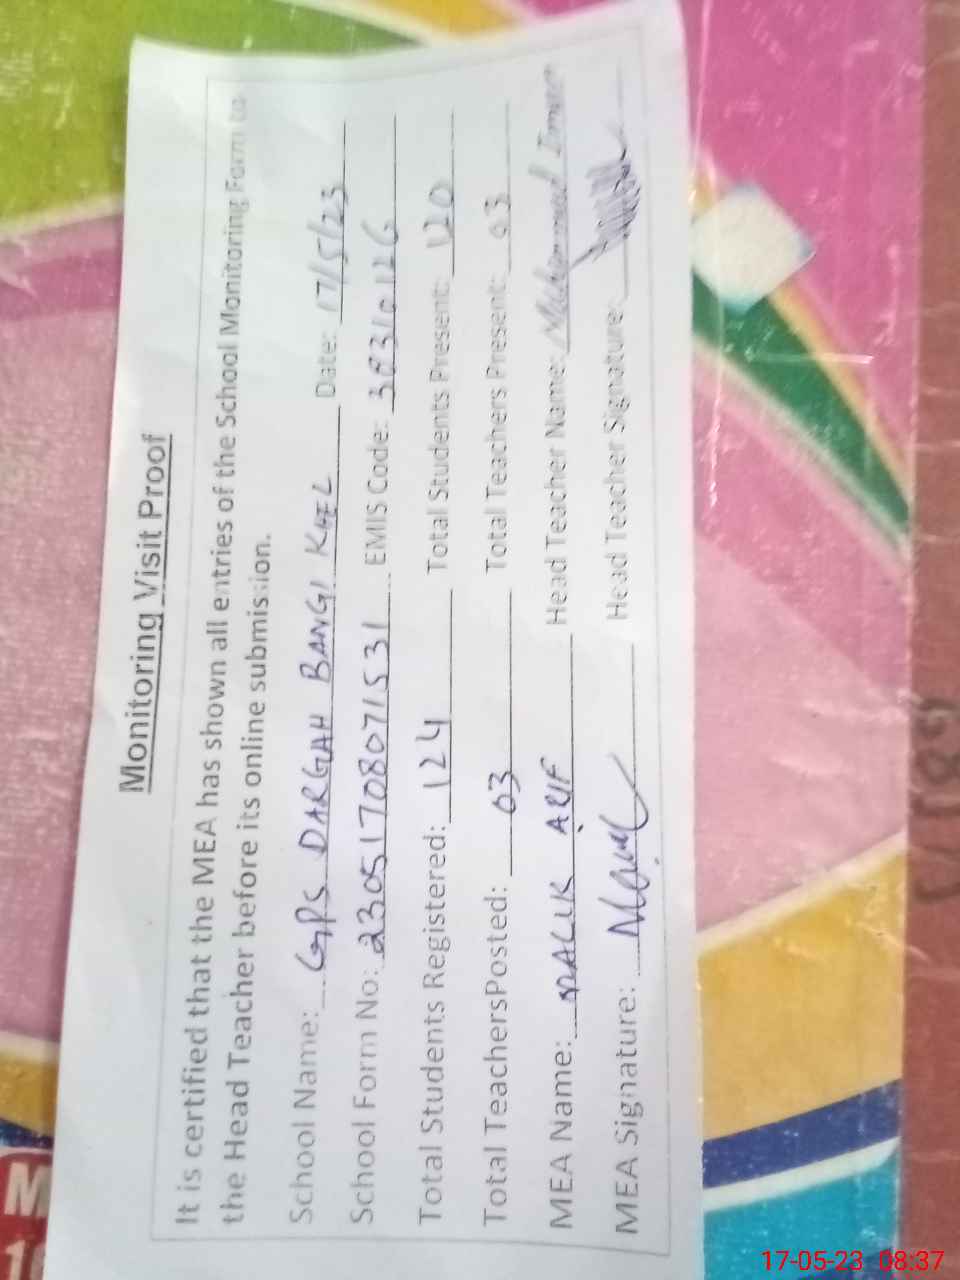 Monitoring Visit Proof
It is certified that the MEA has shown all entries of the School Monitoring Form to
the Head Teacher before its online submission.
School Name: GPS DARGAH BANGI KHEL Date: 17/5/23
School Form No: 23051708071531 EMIS Code: 38310126
Total Students Registered: 124 Total Students Present: 120
Total TeachersPosted: 03 Total Teachers Present: 03
MEA Name: MALIK ARIF Head Teacher Name: Mohammad
MEA Signature: Head Teacher Signature:
17-05-23 08:37